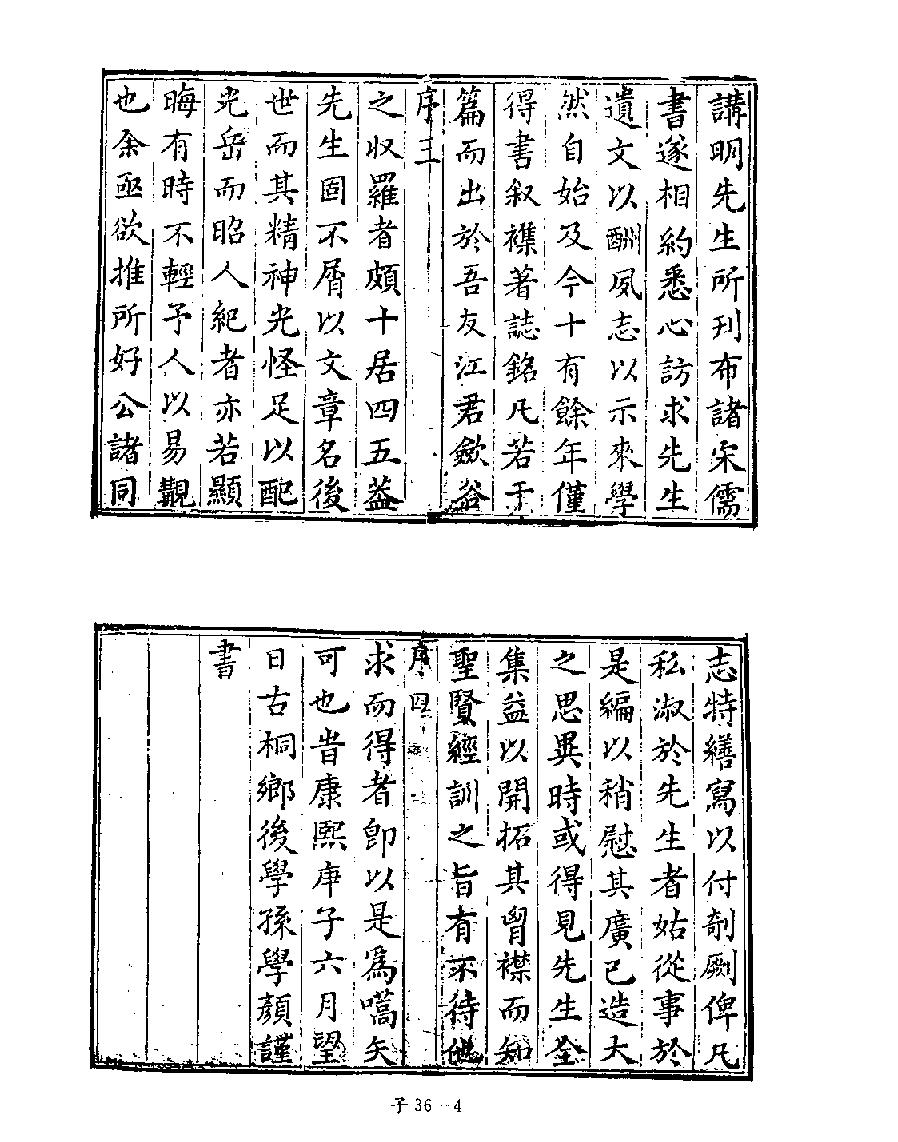 講明先生所刋布諸宋儒
書遂相約悉心訪求先生
遺文以酬夙志以示來學
然自始及今十有餘年僅
得書叙襍著誌銘凡若于
篇而出於吾友江君歙谷
序 三
之収羅者頗十居四五葢
先生固不屑以文章名後
世而其精神光怪足以配
光岳而昭人紀者亦若顯
晦有時不輕予人以易覯
也余亟欲推所好公諸同
志特繕寫以付剞劂俾凡
私淑於先生者姑從事於
是編以稍慰其廣已造大
之思異時或得見先生全
集益以開拓其胷襟而知
聖賢經訓之旨有不待他
序 四
求而得者卽以是爲嚆矢
可也旹康熙庚子六月望
日古桐鄉後學孫學顔謹
書
子36—4